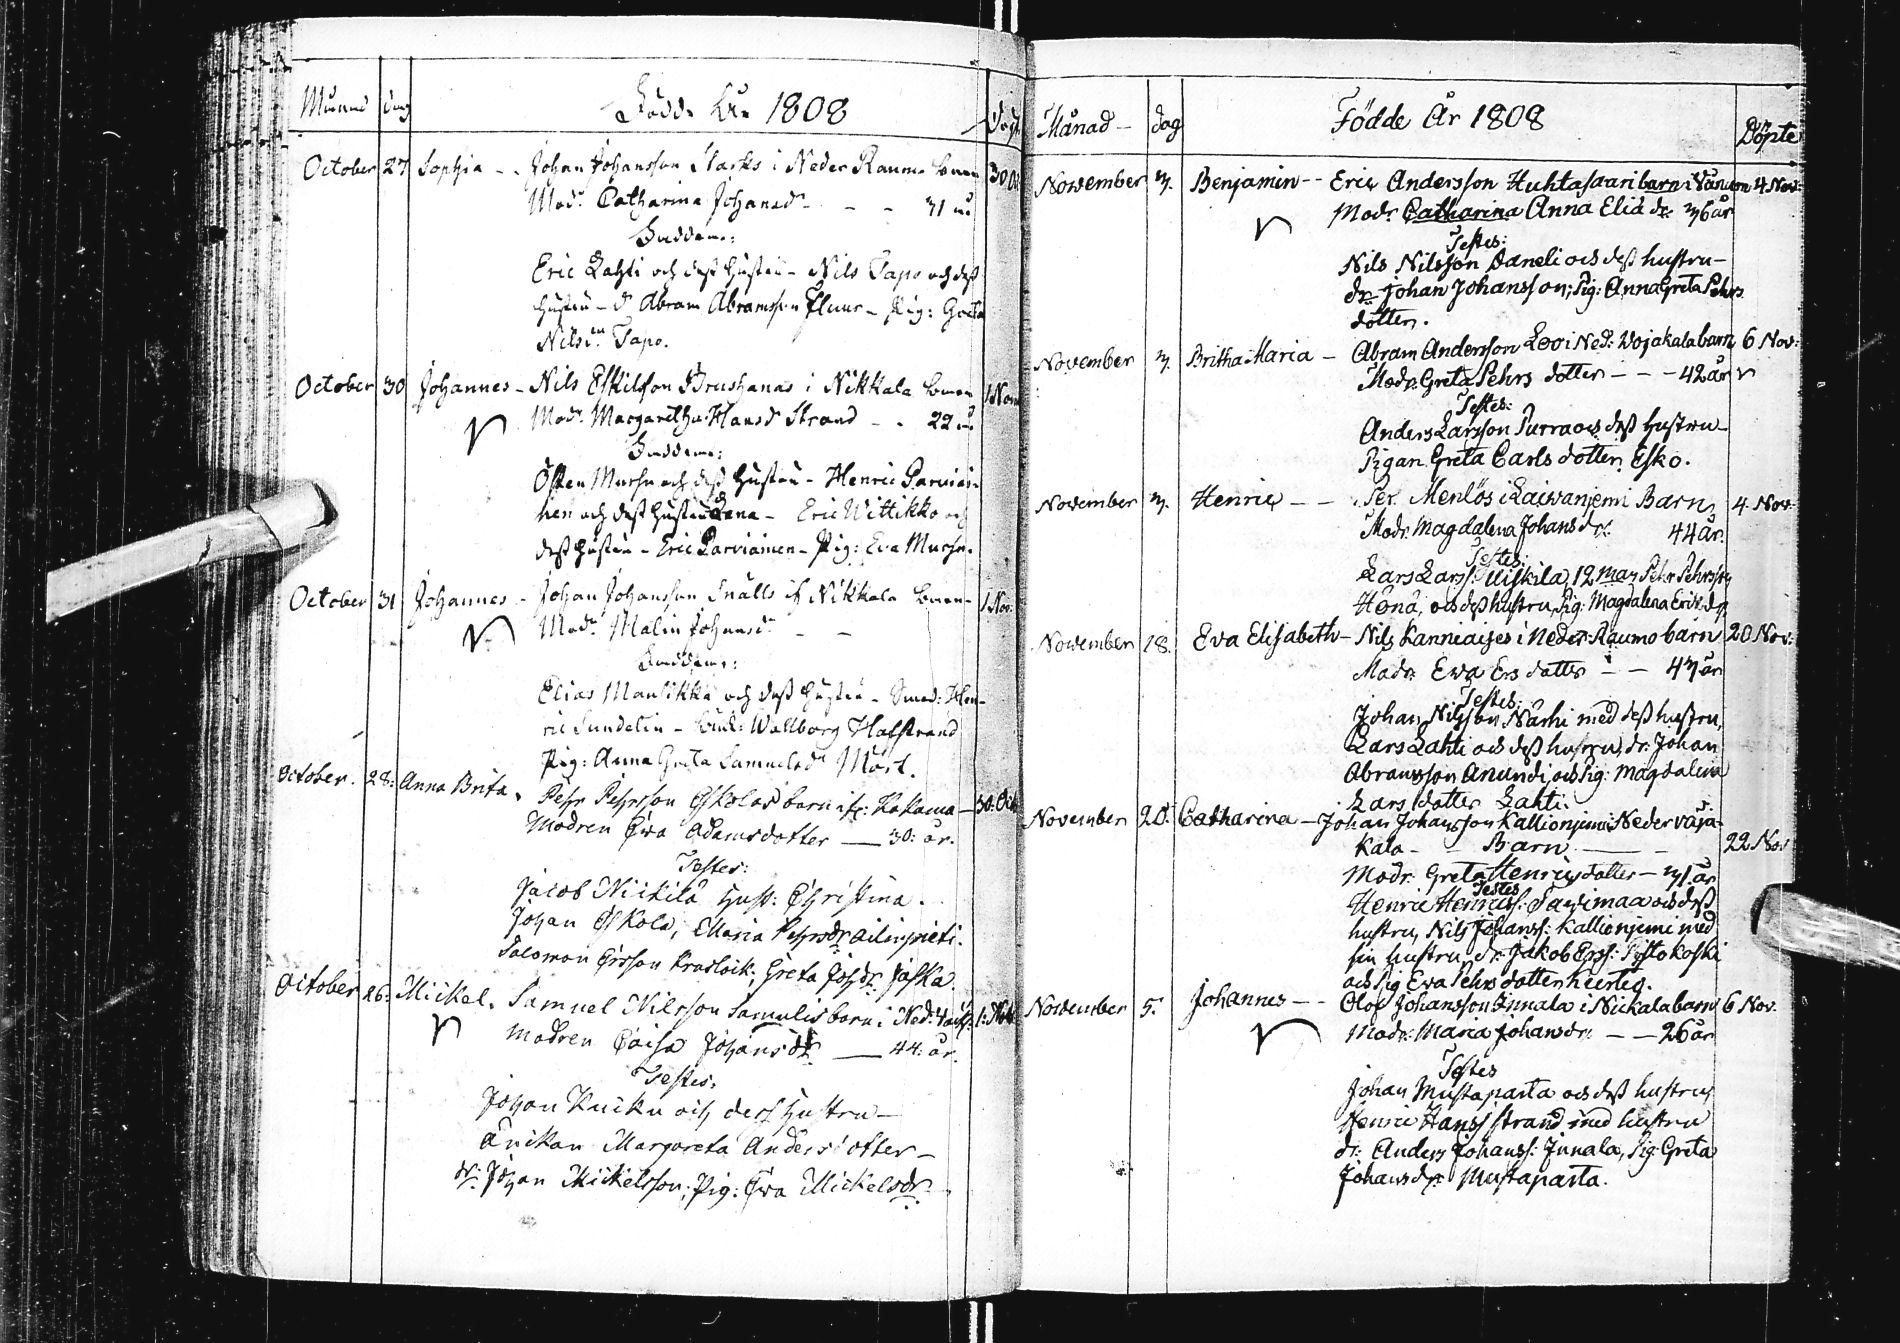 Månad dag Födde År 1808 Döpt
October 27 Sophia - - Johan Johansson Starks i Neder Raumo barn 30 Oct
Modr Catharina Johansdr - - - 31 år
Faddrar:
Eric Lahti och dess hustru - Nils Tapo och dess
hustru - dr Abram Abramsson - Pig: Greta
Nilsdr Tapo.
October 30 Johannes - Nils Eskilsson Brushanas i Nikkala barn 1 Nov
Modr Margaretha Hansdr Strand - - 22 år
Faddrar:
Östen Mursu och dess hustru - Henric Parviai-
nen och dess hustru Lena - Eric Wittikko och
dess hustru - Eric Parviainen - Pig: Eva Mursu.
October 31 Johannes - Johan Johansson Snälls if Nikkala barn - 1 Nov:
Modr Malin Johansdr - -
Faddrar:
Elias Mansikka och dess hustru - Smed: Hen-
ric Sundelin - Wallborg Hafstrand
Pig: Anna Greta Samuelsdr Mört.
October. 28: Anna Brita. Pehr Pehrsson Eskolas barn ifr: Kakama - 30: Oct
Modren Ewa Adamsdotter — 30: år.
Testes:
Jacob Nickilä hust: Christina.
Johan Eskola, Maria Pehrsdr Ailinpieti.
Salomon Ersson, Greta Johdr Jaska.
October 26: Mickel. Samuel Nilsson Samulis barn i Ned: 1: Nov
Modren Caisa Johansdr — 44: år.
Testes:
Johan Kuiku och dess hustru -
Änikan Margareta Andersdotter -
dr: Johan Mickelsson; Pig: Ewa Mickelsdr.
Månad - dag Födde År 1808 Döpte
November 3. Benjamin - - Eric Andersson Huhtasaari barn i 4 Nov:
Modr. Catharina Anna Eliæ dr. 36 år
Testes:
Nils Nilsson Daneli och dess hustru -
dr. Johan Johansson; Pig: Anna Greta Pehrs
dotter.
November 3. Britha Maria - Abram Andersson Loo i Ned: Wojakala barn 6 Nov:
Modr. Greta Pehrs dotter - - - 42 år
Testes:
Anders Larsson Purra och dess hustru -
Pigan Greta Carls dotter Esko.
November 3. Henric - - Per Menlös i Laiwaniemi Barn 4. Nov:
Modr. Magdalena Johans dr: 44 år.
Testes:
Lars Larss: Uiskila, 12 man Pehr Pehrsson
Hōnå, och dess hustru, Pig: Magdalena Eriks dr
November 18. Eva Elisabeth - Nils Kanniaises i Neder-Raumo barn 20 Nov:
Modr. Ewa Ers dotter - - 43 år
Testes:
Johan Nilsson Närhi med dess hustru,
Lars Lahti och dess hustru, dr. Johan
Abramsson Anundi, och Pig: Magdalena
Lars dotter Lahti.
November 20. Catharina - Johan Johansson Kallioniemi i Neder Vāja-
kala - Barn — 22 Nov
Modr. Greta Henrics dotter - 31 år
Testes
Henric Henricss: och dess
hustru, Nils Johanss: Kallioniemi med
sin hustru, dr. Jakob Erss: Pystokoski
och Pig Eva Pehrs dotter Keirteg.
November 5. Johannes - - Olof Johansson Innala i Nickala barn 6 Nov.
Modr: Maria Johans dr. - - 26 år
Testes
Johan Mustaparta och dess hustru,
Henric Hanss Strand med hustru
dr. Anders Johanss: Innala, Pig. Greta
Johans dr. Mustaparta.